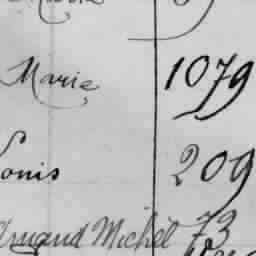 Marie 1079
Louis 209
Armand Michel 73